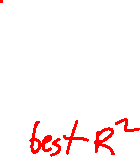 best R²